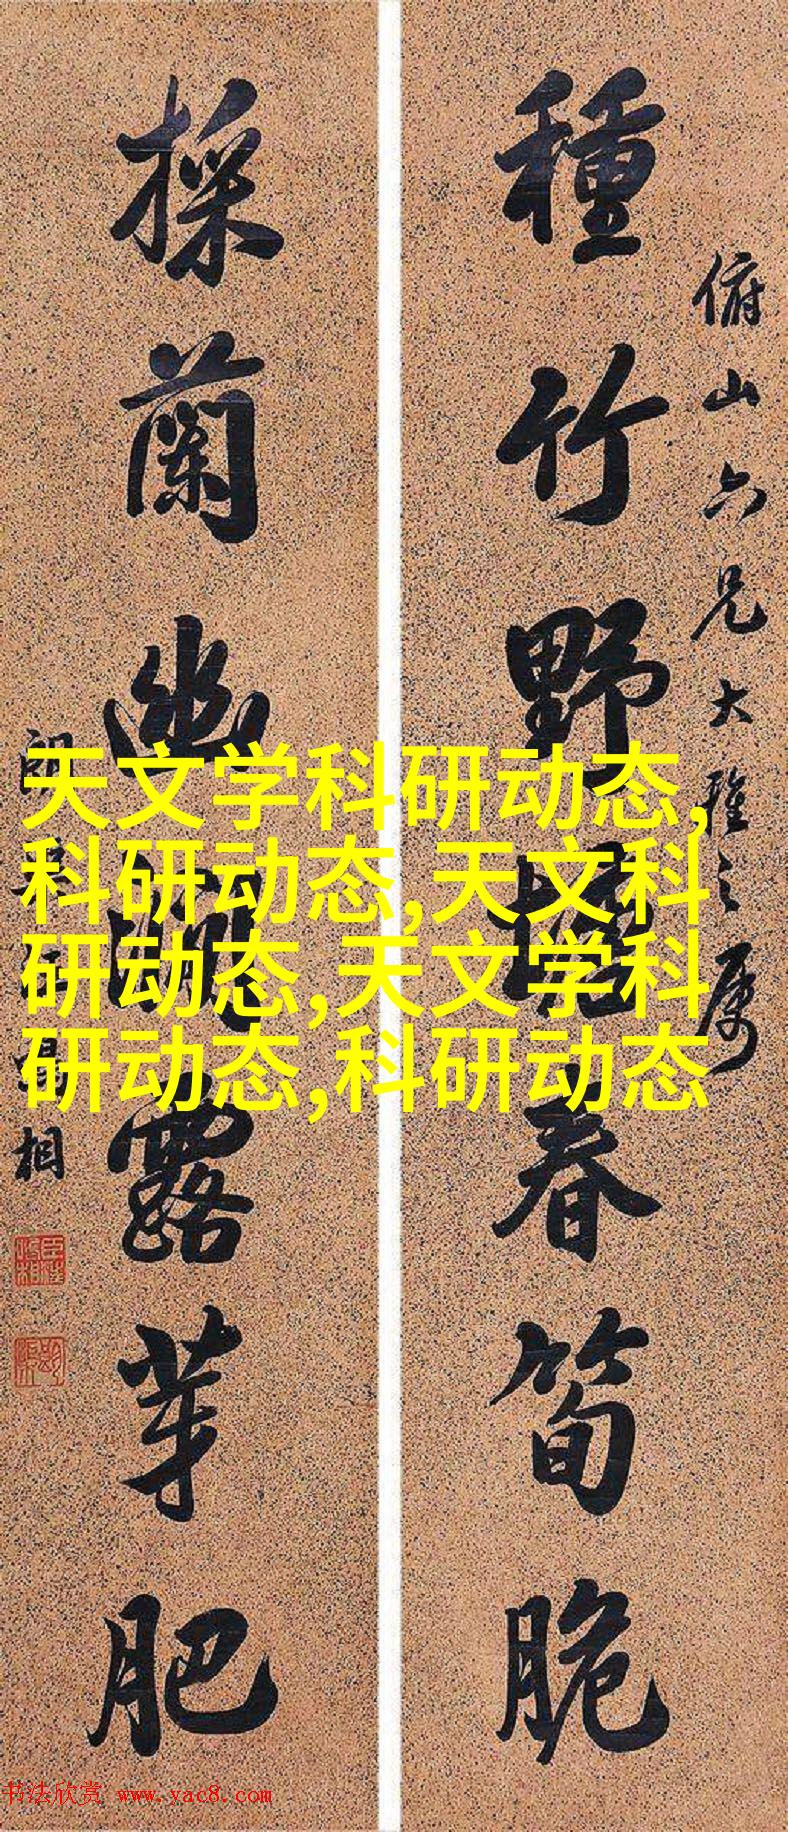 種竹野塘春筍脆
俯山六兄大雅之属
採蘭幽澗露芽肥
相
天文学科研动态,
科研动态,天文科
研动态,天文学科
研动态,科研动态
书法欣赏 www.yac8.com